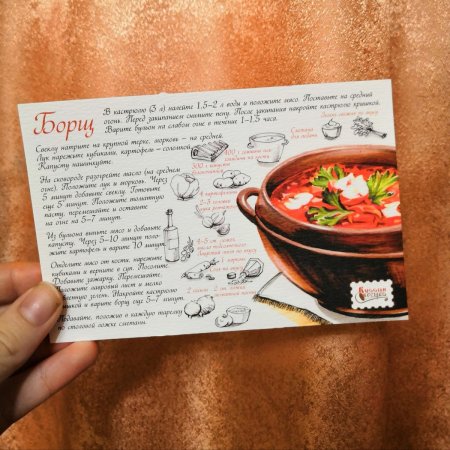 Борщ
В кастрюлю (3 л) налейте 1,5-2 л воды и положите мясо. Поставьте на средний
огонь. Перед закипанием снимите пену. После закипания накройте кастрюлю крышкой.
Варите бульон на слабом огне в течение 1-1,5 часа.
Свеклу натрите на крупной терке, морковь - на средней.
Лук нарежьте кубиками, картофель - соломкой.
Капусту нашинкуйте.
На сковороде разогрейте масло (на среднем
огне). Положите лук и морковь. Через
5 минут добавьте свеклу. Готовьте
еще 5 минут. Положите томатную
пасту, перемешайте и оставьте
на огне на 5-7 минут.
Из бульона выньте мясо и добавьте
капусту. Через 5-10 минут поло-
жите картофель и варите 10 минут.
Отделите мясо от кости, нарежьте
кубиками и верните в суп. Посолите.
Добавьте зажарку. Перемешайте.
Положите лавровый лист и мелко
зелень. Накройте кастрюлю
крышкой и варите борщ еще 5-7 минут.
Подавайте, положив в каждую тарелку
по столовой ложке сметаны.
Сметана
для подачи
300 г
4 картофелины
Russian